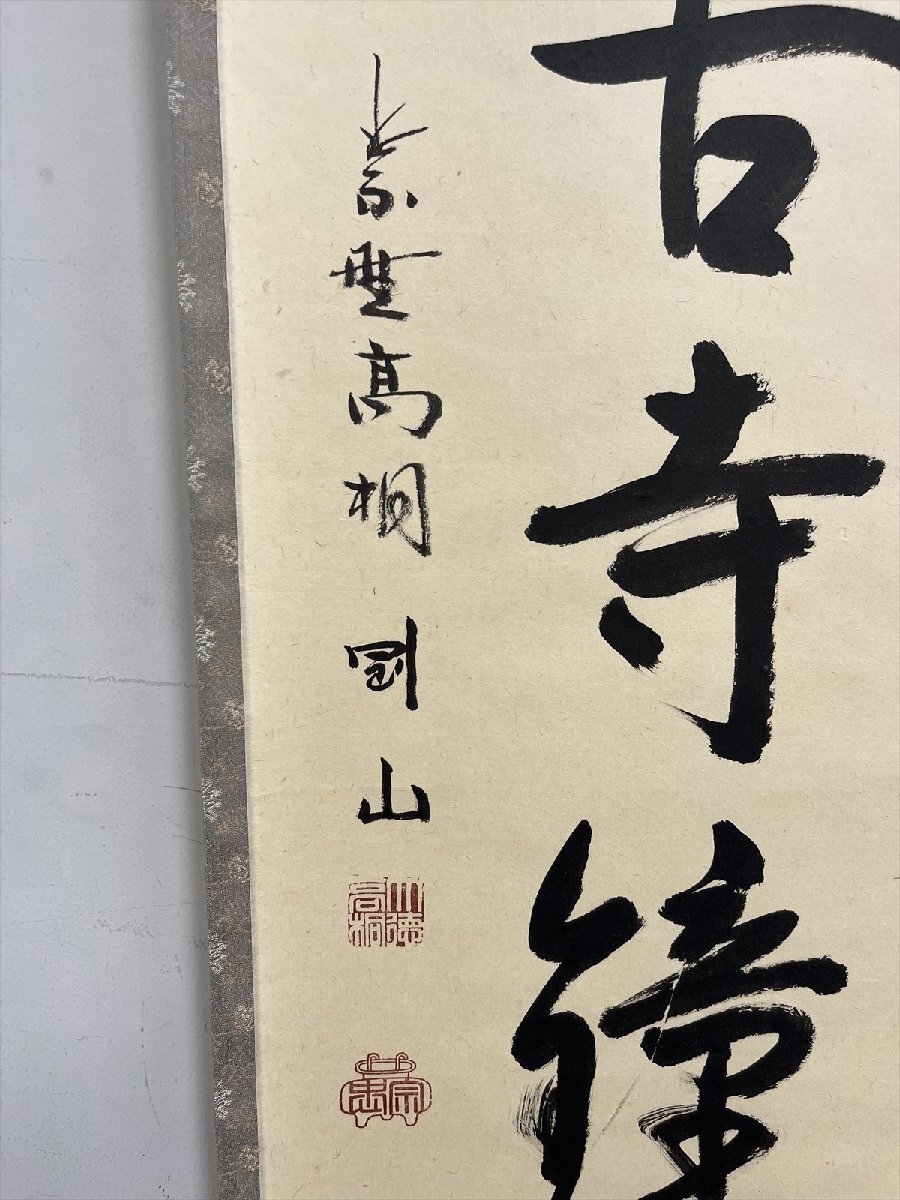 古寺鐘
紫野高桐剛山